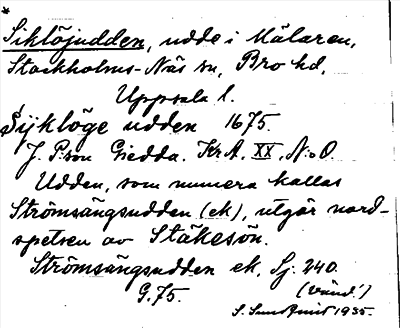 *
Siklöjudden, udde i Mälaren,
Stockholms-Näs sn, Bro hd,
Uppsala l.
Sijklöge udden 1675.
J. P:son Giedda. KrA, XX, N:o 0.
Udden, som numera kallas
Strömsängsudden (ek), utgår nord-
spetsen av Stäkesön.
Strömsängsudden ek, Sj. 240.
G. 75. (Vänd!)
S. Sundquist 1935.